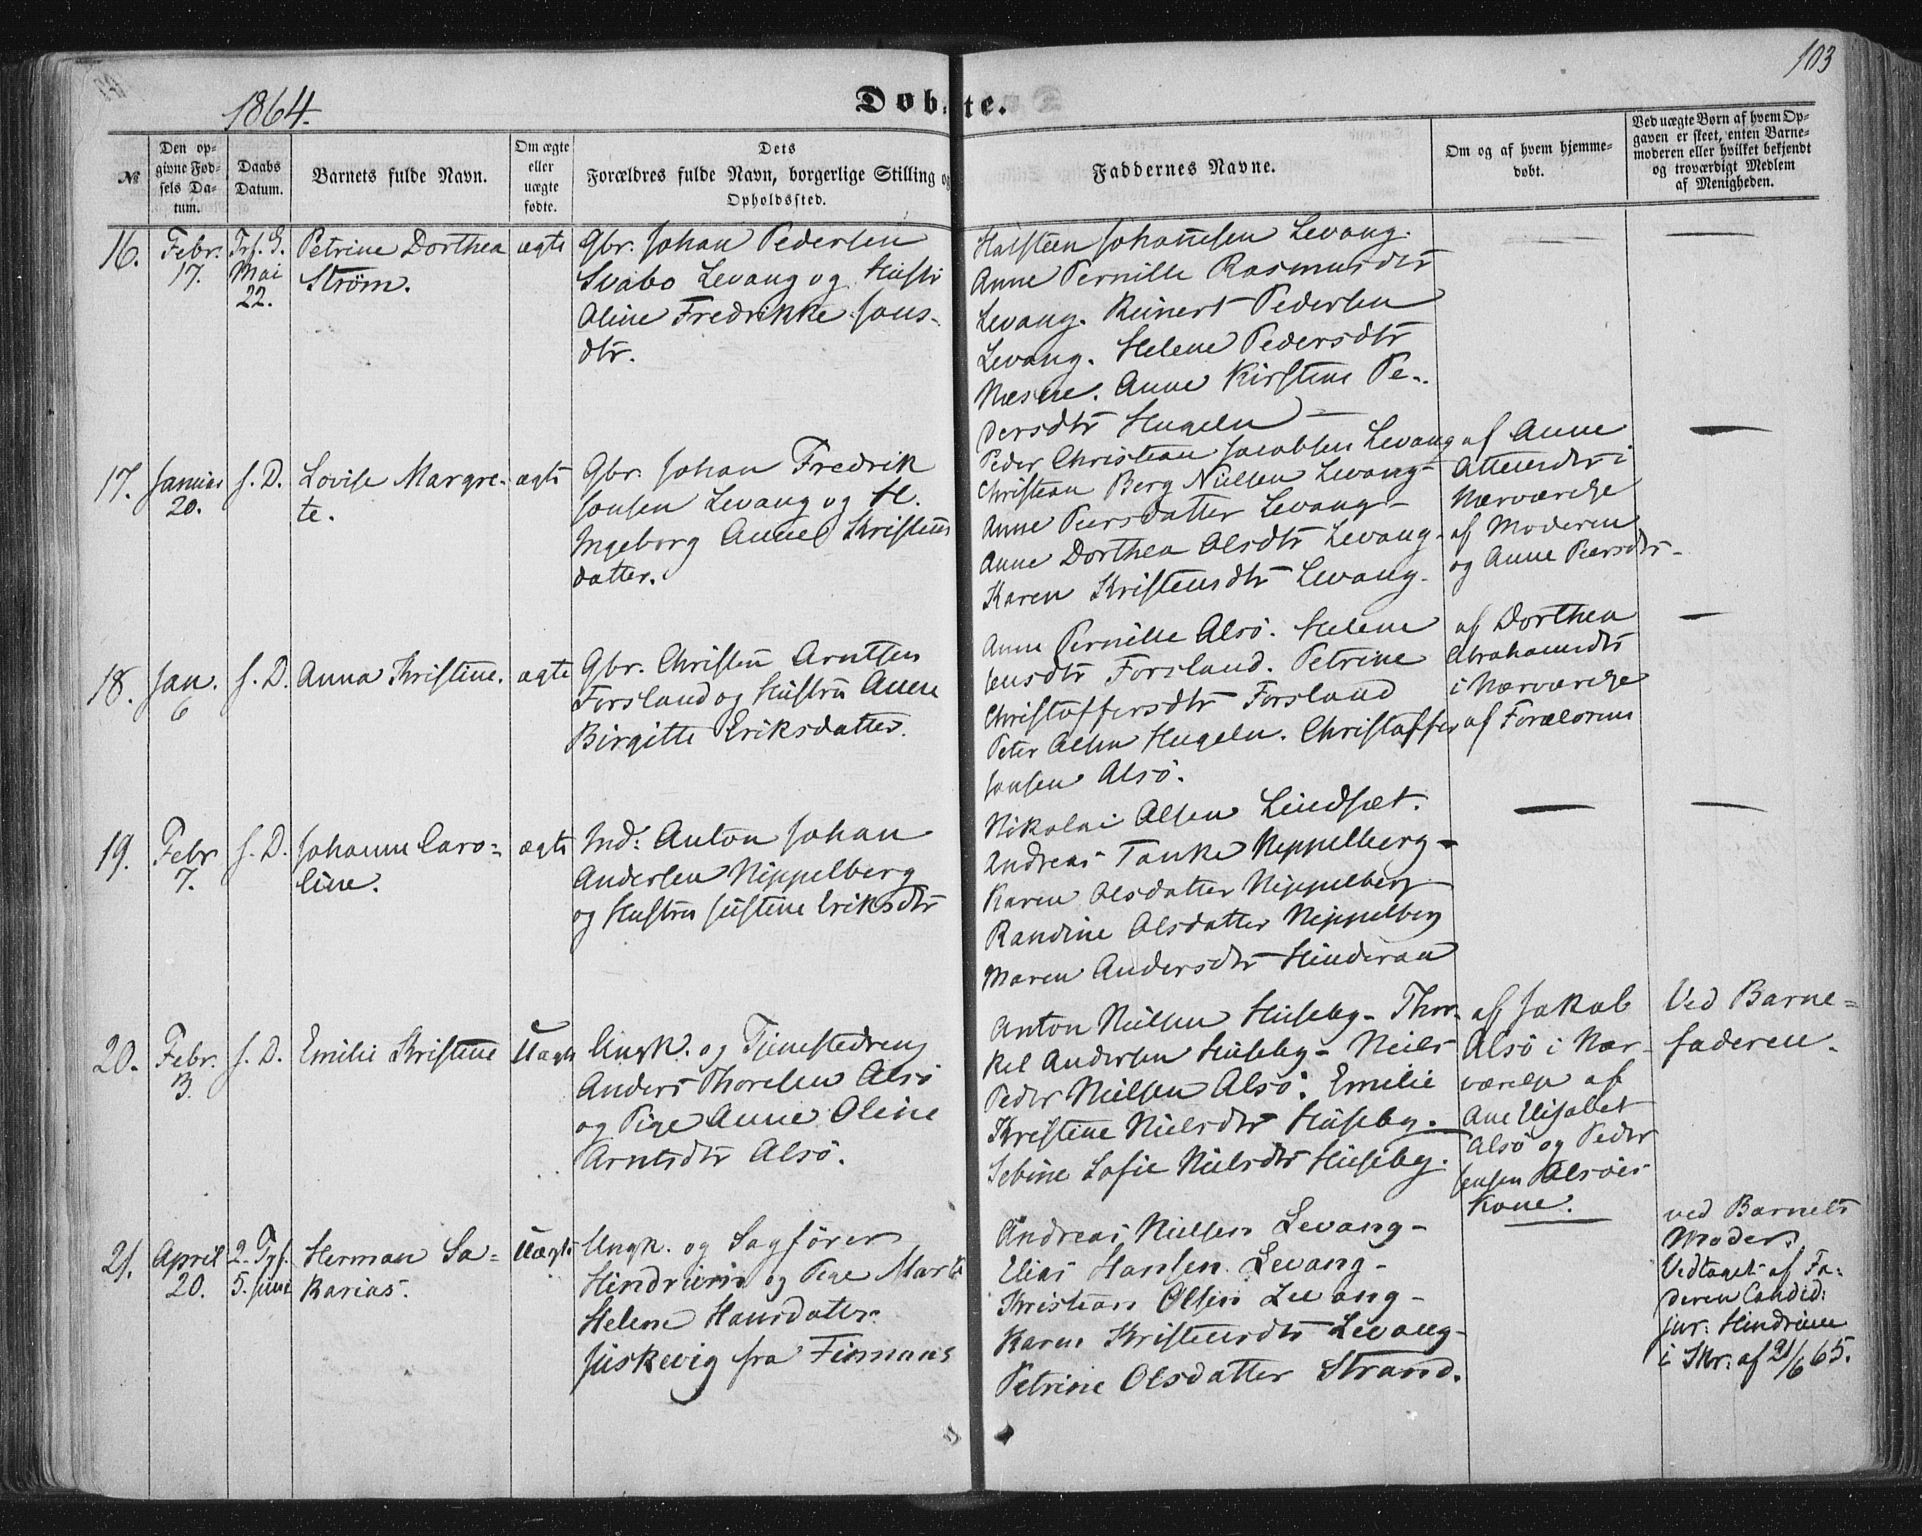 103
1864.
Døbte.
№
Den op-
givne Fød-
sels Da-
tum.
Daabs
Datum.
Barnets fulde Navn.
Om ægte
eller
uægte
fødte.
Dets
Forældres fulde Navn, borgerlige Stilling og
Opholdssted.
Faddernes Navne.
Om og af hvem hjemme-
døbt.
Ved uægte Børn af hvem Op-
gaven er skeet, enten Barne-
moderen eller hvilket bekjendt
og troværdigt Medlem
af Menigheden.
16.
Febr.
17.
Trf. S.
Mai
22.
Petrine Dorthea
Strøm.
ægte
Gbr. Johan Pedersen
Svabo Levang og Hustru
Oline Fredrikke Jons-
dtr.
Halsteen Johannesen Levang.
Anne Pernille Rasmusdtr
Levang. Reinert Pedersen
Levang. Helene Pedersdtr
Næsne. Anne Kirstine Pe-
dersdtr Hugeln
17.
Januar
20.
s. D.
Lovise Margre-
te.
ægte
Gbr. Johan Fredrik
Jonsen Levang og H.
Ingeborg Anne Kristens
datter.
Peder Christian Jacobsen Levang
Christian Berg Nielsen Levang-
Anne Peersdatter Levang-
Anne Dorthea Olsdtr Levang-
Karen Kristensdtr Levang.
af Anne
Attensdtr i
Nærværelse
af Moderen
og Anne Peersdtr-
18.
Jan.
6
s. D.
Anna Kristine.
ægte
Gbr. Christen Arntsen
Forsland og Hustru Anne
Birgitte Eriksdatter.
Anne Pernille Alsö. Helene
Jensdtr Forsland. Petrine
Christoffersdtr Forsland
Peter Olsen Hugeln. Christoffer
Jonsen Alsö.
af Dorthea
Abrahamsdtr
i Nærværelse
af Forældrene
19.
Febr
7.
s. D.
Johanne Caro-
line.
ægte
Ind. Anton Johan
Andersen Nippelberg
og Hustru Justine Eriksdtr
Nikolai Olsen Lindsæt.
Andreas Tanke Neppelberg-
Karen Olsdatter Nippelberg
Randine Olsdatter Neppelberg
Maren Andersdtr Hinderau
20.
Febr.
13.
s. D.
Emilie Kristine
Uægte
Ungk. og Tjenestedreng
Anders Thorsen Alsö
og Pige Anne Oline
Arntsdtr Alsö.
Anton Nielsen Huseby- Thor-
kel Andersen Huseby- Neils
Peder Nielsen Alsö. Emilie
Kristine Nielsdtr Huseby.
Sebine Sofie Nielsdtr Huseby.
af Jakob
Alsö i Nær-
værelse af
Ane Elisabet
Alsö og Peder
Jensen Alsöes
Kone.
Ved Barne-
faderen.
21.
April
20.
2. Trf.
5. Juni
Herman Sa-
karias.
Uægte
Ungk. og Sagförer
Hindrum og Pige
Helene Hansdatter
fra
Andreas Nielsen Levang-
Elias Hansen Levang-
Kristian Olsen Levang-
Karen Kristensdtr Levang-
Petrine Olsdatter Strand.
ved Barnets
Moder.
Vedtaget af Fa-
deren Candid:
jur: Hindrum
i Skr: af 2/6 65.